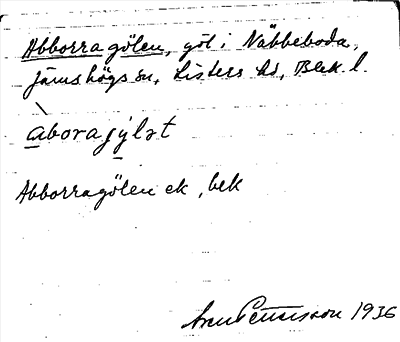 Abborragölen, göl i Näbbeboda,
Jämshögs sn, Listers hd, Blek. l.
àborajýlət
Abborragölen ek, bek
Pettersson 1936